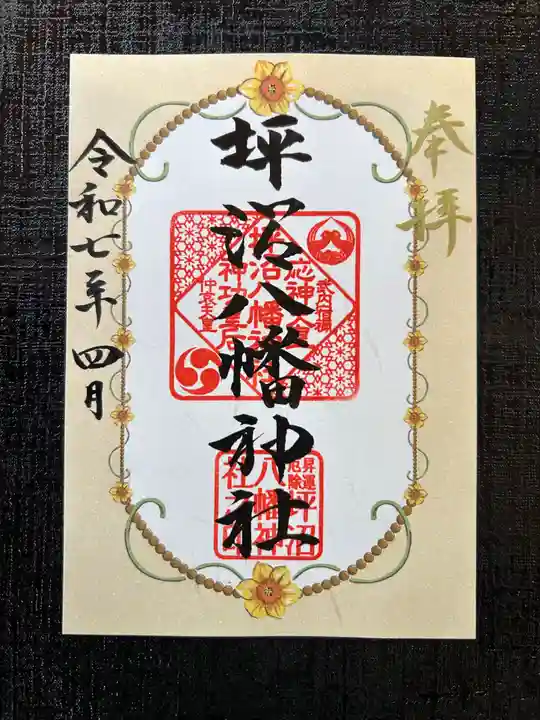 奉拝
坪沼八幡神社
令和七年四月
応神天皇
武内宿禰
坪沼八幡神社
神功皇后
仲哀天皇
昇運
厄除
坪沼
八幡神
社之印